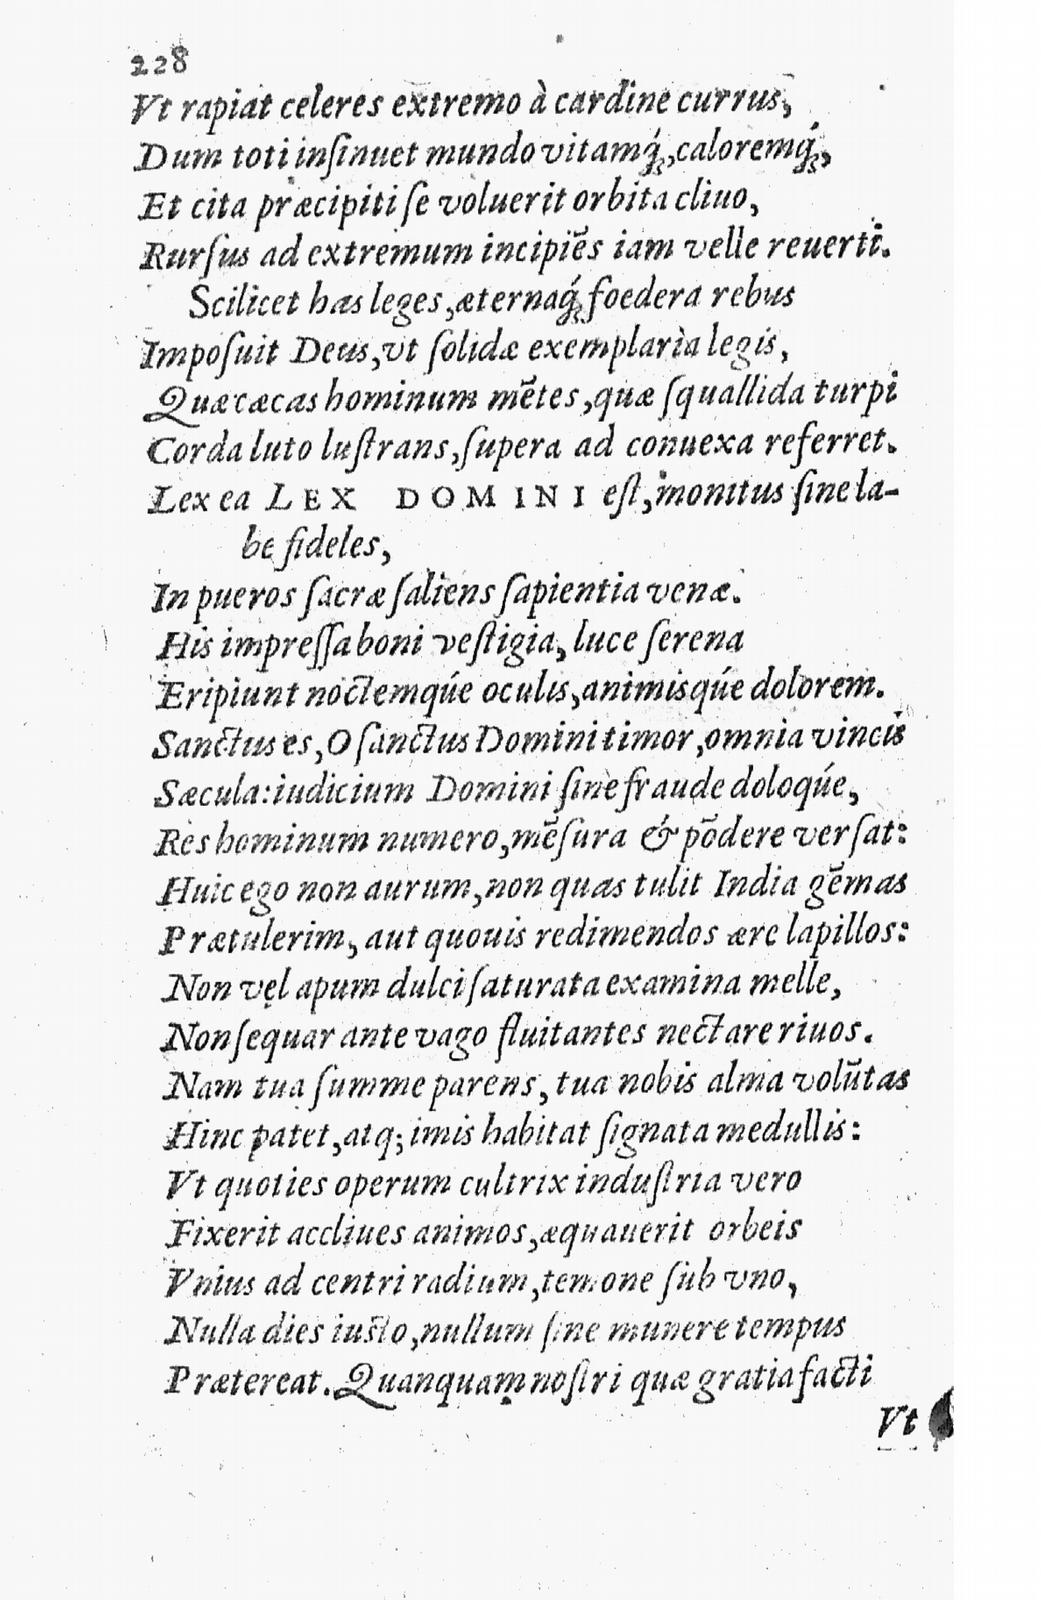 228
Vt rapiat celeres extremo à cardine currus,
Dum toti inſinuet mundo vitamq́;, caloremq́;,
Et cita præcipiti ſe voluerit orbita cliuo,
Rurſus ad extremum incipiẽs iam velle reuerti.
Scilicet has leges, æternaq́; foedera rebus
Impoſuit Deus, vt ſolidæ exemplaria legis,
Quæ cæcas hominum mẽtes, quæ ſquallida turpi
Corda luto luſtrans, ſupera ad conuexa referret.
Lex ea LEX DOMINI eſt, monitus ſine la-
be fideles,
In pueros ſacræ ſaliens ſapientia venæ.
His impreſſa boni veſtigia, luce ſerena
Eripiunt noctemqúe oculis, animisqúe dolorem.
Sanctus es, O ſanctus Domini timor, omnia vincis
Sæcula: iudicium Domini ſine fraude doloqúe,
Res hominum numero, mẽſura & põdere verſat:
Huic ego non aurum, non quas tulit India gẽmas
Prætulerim, aut quouis redimendos ære lapillos:
Non vel apum dulci ſaturata examina melle,
Non ſequar ante vago fluitantes nectare riuos.
Nam tua ſumme parens, tua nobis alma volũtas
Hinc patet, atq; imis habitat ſignata medullis:
Vt quoties operum cultrix induſtria vero
Fixerit accliues animos, æquauerit orbeis
Vnius ad centri radium, temone ſub vno,
Nulla dies iusto, nullum ſine munere tempus
Prætereat. Quanquam noſtri quæ gratia facti
Vt